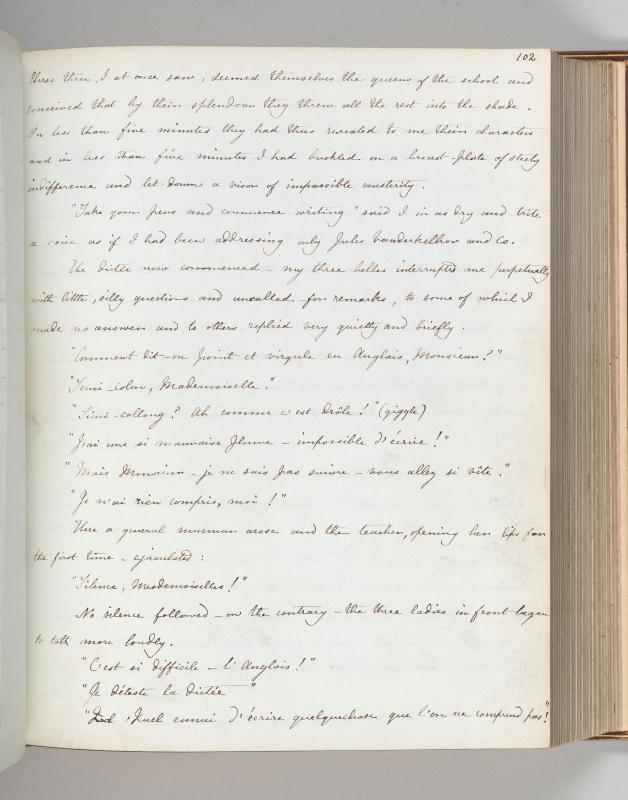 102
these three, I at once saw, deemed themselves the queens of the school and
conceived that by their splendour they threw all the rest into the shade.
In less than five minutes they had thus revealed to me their characters
and in less than five minutes I had buckled on a breast-plate of steely
indifference and let down a visor of impassible austerity.
"Take your pens and commence writing" said I in as dry and trite
a voice as if I had been addressing only Jules Vanderkelkov and Co.
The dictée now commenced – my three belles interrupted me perpetually
with little, silly questions and uncalled-for remarks, to some of which I
made no answer and to others replied very quietly and briefly.
"Comment dit-on point et virgule en Anglais, Monsieur?"
"Semi-colon, Mademoiselle."
"Simi-collong? Ah comme c'est drôle!" (giggle)
"J'ai une si mauvaise plume – impossible d'écrire!"
"Mais Monsieur – je ne sais pas suivre – vous allez si vîte."
"Je n'ai rien compris, moi!"
Here a general murmur arose and the teacher, opening her lips for
the first time – ejaculated:
"Silence, Mesdemoiselles!"
No silence followed – on the contrary – the three ladies in front began
to talk more loudly.
"C'est si difficile – l'Anglais!"
"Je déteste la dictée"
"Quel ennui d'écrire quelquechose que l'on ne comprend pas!"